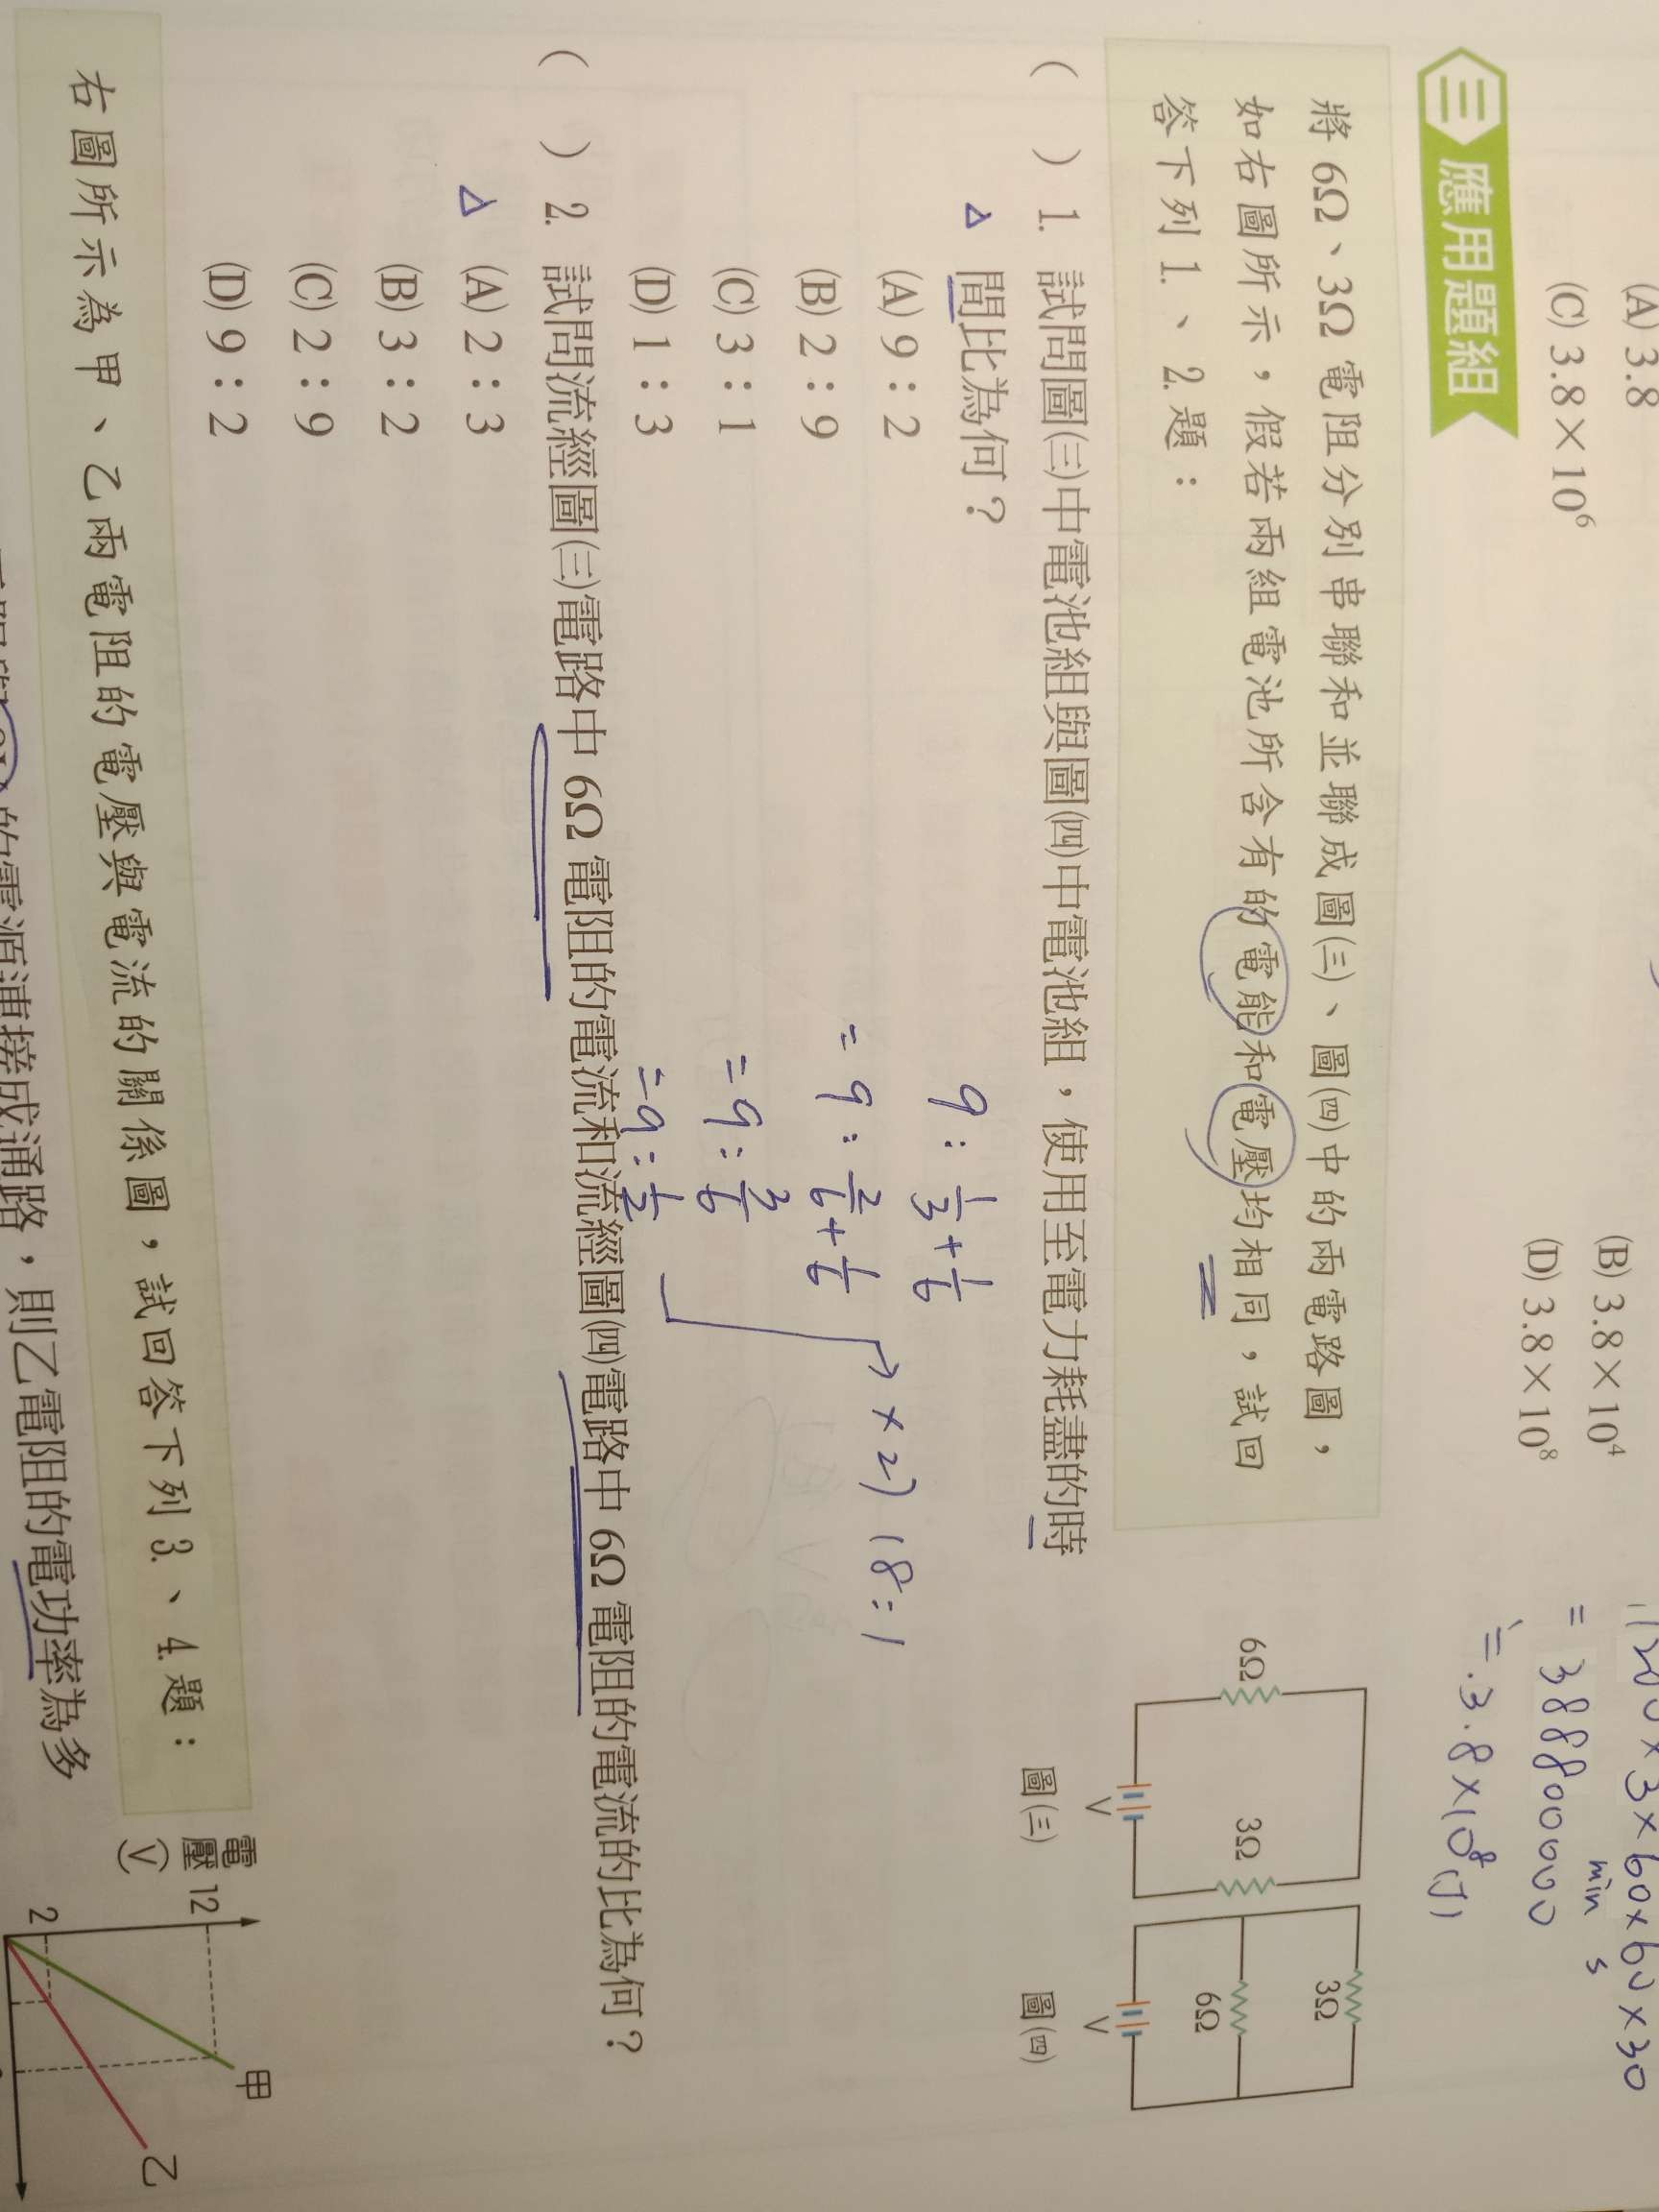 (A) 3.8
(B) 3.8×10⁴
(C) 3.8×10⁶
(D) 3.8×10⁸
×3×60×60×30
min s
= 388800000
≒3.8×10⁸(J)
三 應用題組
將 6Ω、3Ω 電阻分別串聯和並聯成圖㈢、圖㈣中的兩電路圖，
如右圖所示，假若兩組電池所含有的電能和電壓均相同，試回
答下列 1.、2.題：
6Ω
3Ω
V
圖㈢
3Ω
6Ω
V
圖㈣
( ) 1. 試問圖㈢中電池組與圖㈣中電池組，使用至電力耗盡的時
△ 間比為何？
(A) 9：2
(B) 2：9
(C) 3：1
(D) 1：3
9 : 1/3 + 1/6
= 9 : 2/6 + 1/6
= 9 : 3/6
= 9 : 1/2
×2) 18 : 1
( ) 2. 試問流經圖㈢電路中 6Ω 電阻的電流和流經圖㈣電路中 6Ω 電阻的電流的比為何？
△ (A) 2：3
(B) 3：2
(C) 2：9
(D) 9：2
右圖所示為甲、乙兩電阻的電壓與電流的關係圖，試回答下列 3.、4.題：
電壓
(V)
12
2
甲
乙
的電源連接成通路，則乙電阻的電功率為多